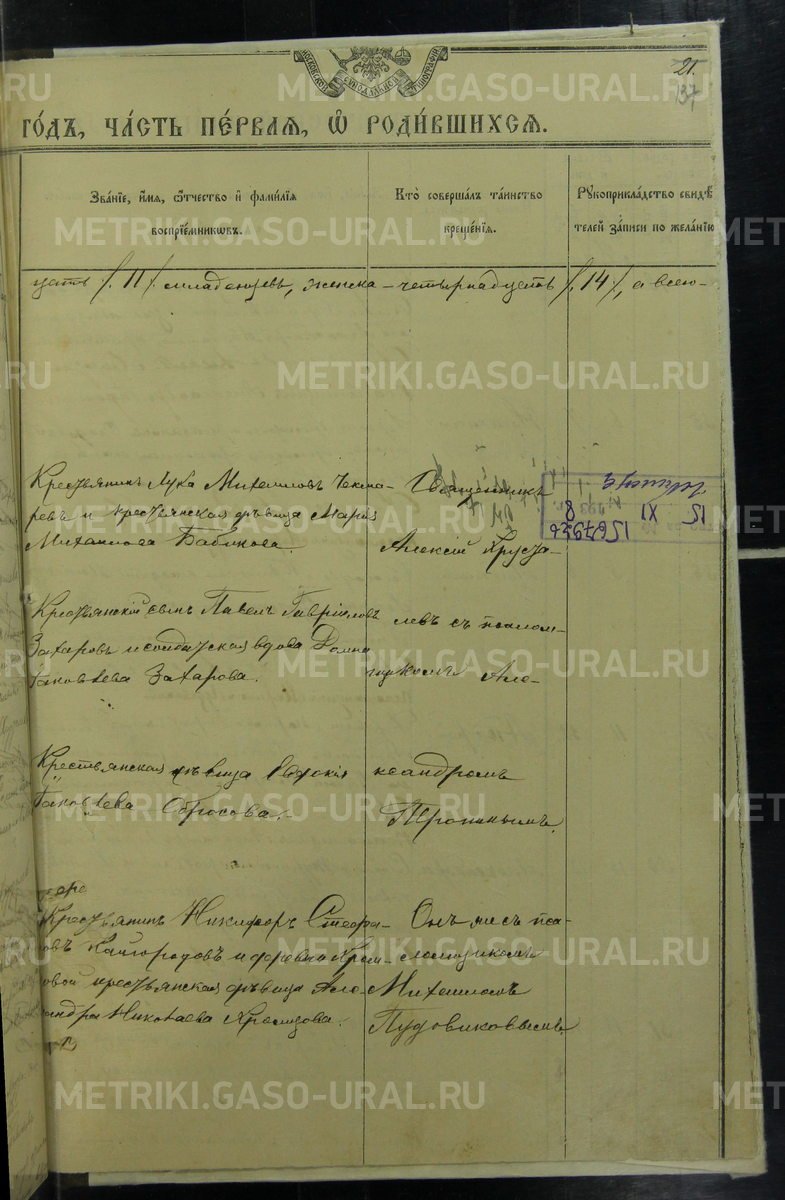 МОСКОВСКОЙ СѴНОДАЛЬНОЙ ТИПОГРАФІИ
21.
137
ГО́ДЪ, ЧА́СТЬ ПЕ́РВАЯ, Ѡ҆ РОДИ́ВШИХСЯ.
Зва́нїе, и҆́мя, ѻ҆́тчество и҆ фами́лїя
воспрїе́мникѡвъ.
Кто̀ соверша́лъ та́инство
креще́нїя.
Рꙋкоприкла́дство свидѣ́
телей за́писи по жела́нїю
цать /11/ младенцевъ, женска – четырнадцать /14/, а всего –
Крестьянинъ Лука Михаиловъ Чекма-
ревъ и крестьянская дѣвица Марія
Михаилова Бабикова.
Священникъ
Алексій Хруста-
Крестьянскій сынъ Павелъ Гавріиловъ
Захаровъ и солдатская вдова Домна
Іаковлева Захарова.
левъ съ псалом-
щикомъ Але-
Крестьянская дѣвица Евдокія
Іаковлева Обросова.
ксандромъ
Пронинымъ.
Крестьянинъ Никифоръ Стефа-
новъ Кайгородовъ и деревни
овой крестьянская дѣвица Але-
ксандра Николаева
Онъ же съ пса-
ломщикомъ
Михаиломъ
Пудовиковымъ.
15 XI 8
1567926
METRIKI.GASO-URAL.RU